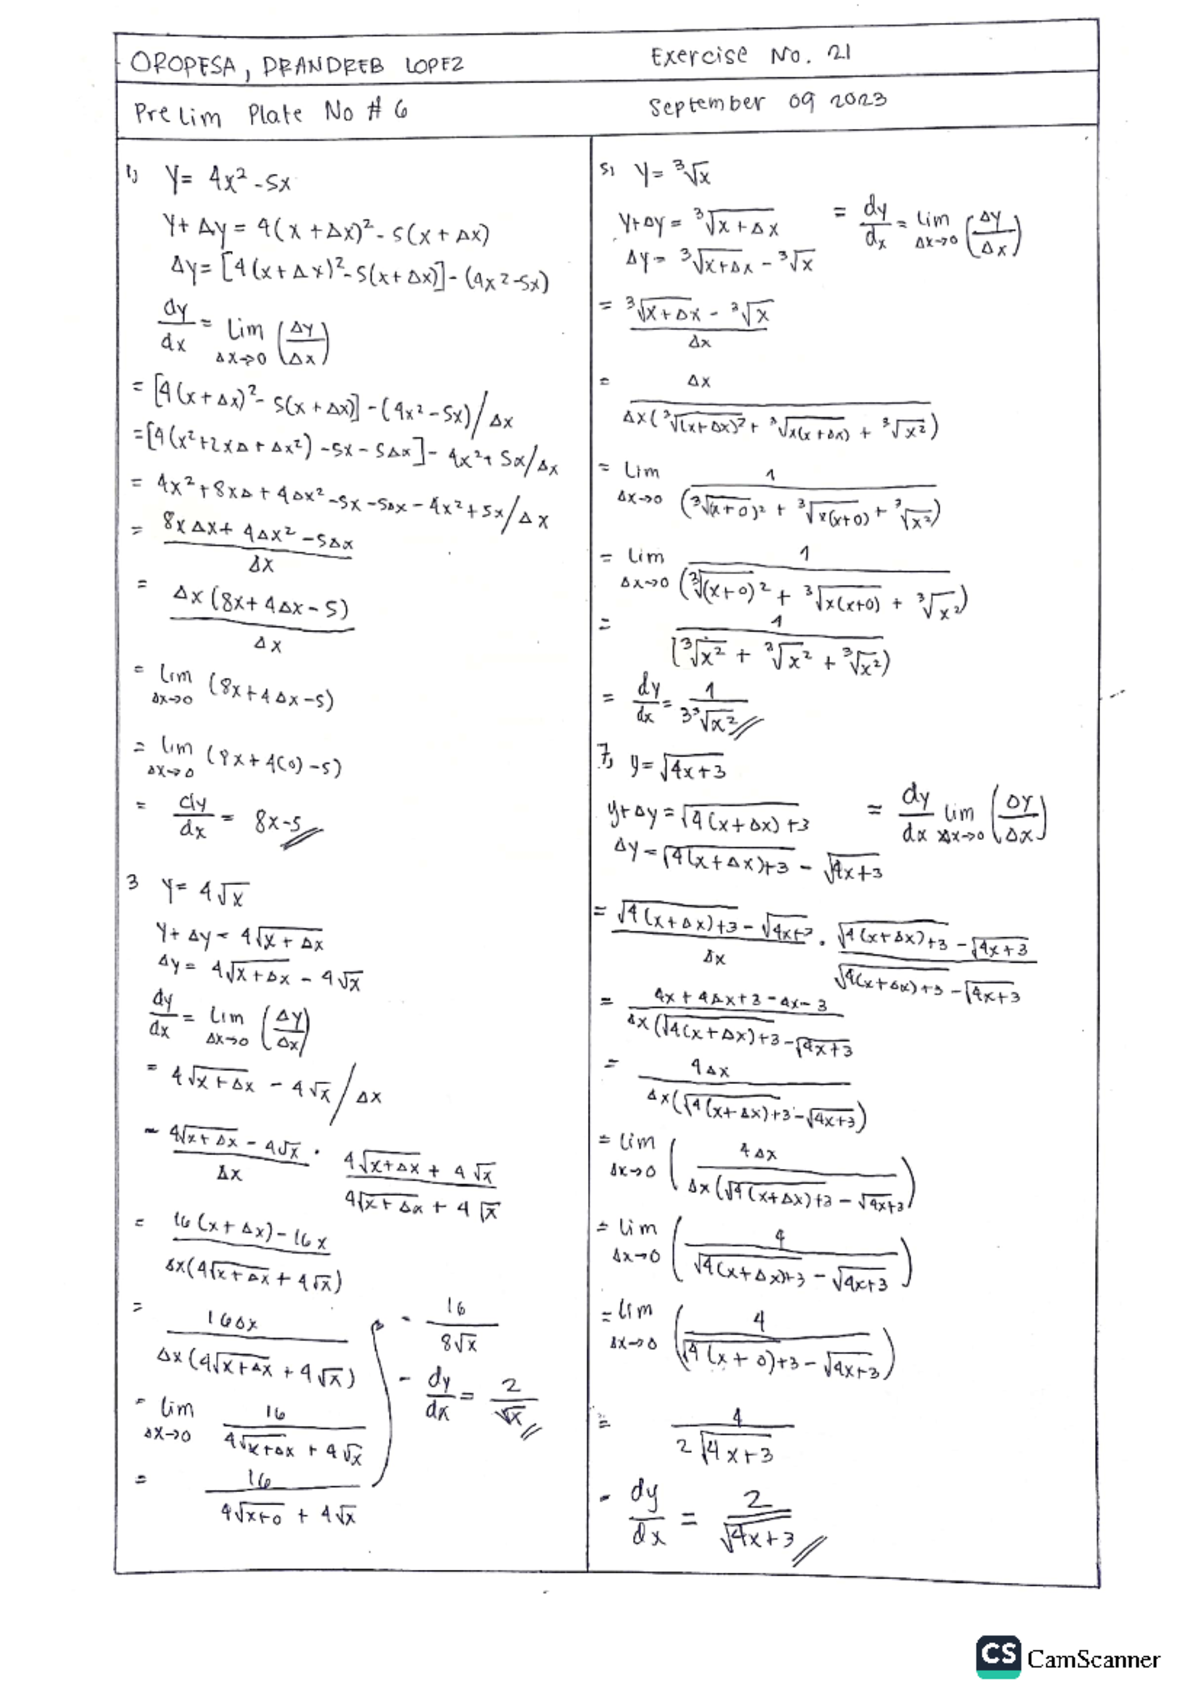 OROPESA, DRANDREB LOPEZ
Exercise No. 21
Prelim Plate No # 6
September 09 2023
1) Y= 4x² -5x
Y+ Δy = 4(x+Δx)² - 5(x+Δx)
Δy= [4(x+Δx)²-5(x+Δx)] - (4x²-5x)
dy/dx = Lim Δx→0 (Δy/Δx)
= [4(x+Δx)²- 5(x+Δx)] - (4x²-5x)/Δx
=[4(x²+2xΔ+Δx²) -5x-5Δx] - 4x²+5x/Δx
= 4x²+8xΔ+4Δx²-5x-5Δx-4x²+5x/Δx
= 8xΔx+4Δx²-5Δx / Δx
= Δx(8x+4Δx-5) / Δx
= Lim Δx→0 (8x+4Δx-5)
= lim Δx→0 (8x+4(0)-5)
= dy/dx = 8x-5
3 Y= 4√x
Y+ Δy= 4√(x+Δx)
Δy= 4√(x+Δx) - 4√x
dy/dx = Lim Δx→0 (Δy/Δx)
= 4√(x+Δx) - 4√x / Δx
= 4√(x+Δx) - 4√x / Δx · 4√(x+Δx) + 4√x / 4√(x+Δx) + 4√x
= 16(x+Δx)-16x / Δx(4√(x+Δx) + 4√x)
= 16Δx / Δx(4√(x+Δx) + 4√x)
= lim Δx→0 16 / 4√(x+Δx) + 4√x
= 16 / 4√(x+0) + 4√x
= 16 / 8√x
= dy/dx = 2/√x
5) Y= ³√x
Y+Δy= ³√(x+Δx)
= dy/dx = lim Δx→0 (Δy/Δx)
Δy= ³√(x+Δx) - ³√x
= ³√(x+Δx) - ³√x / Δx
= Δx / Δx(³√(x+Δx)² + ³√x(x+Δx) + ³√x²)
= Lim Δx→0 1 / (³√(x+0)² + ³√x(x+0) + ³√x²)
= lim Δx→0 1 / (³√(x+0)² + ³√x(x+0) + ³√x²)
= 1 / (³√x² + ³√x² + ³√x²)
= dy/dx = 1 / 3³√x²
7) y= √(4x+3)
y+Δy = √(4(x+Δx)+3)
= dy/dx lim Δx→0 (Δy/Δx)
Δy=√(4(x+Δx)+3) - √(4x+3)
= √(4(x+Δx)+3) - √(4x+3) / Δx · √(4(x+Δx)+3) - √(4x+3) / √(4(x+Δx)+3) - √(4x+3)
= 4x+4Δx+3-4x-3 / Δx(√(4(x+Δx)+3) - √(4x+3)
= 4Δx / Δx(√(4(x+Δx)+3) - √(4x+3))
= lim Δx→0 (4Δx / Δx(√(4(x+Δx)+3) - √(4x+3))
= lim Δx→0 (4 / √(4(x+Δx)+3) - √(4x+3))
= lim Δx→0 (4 / √(4(x+0)+3) - √(4x+3))
= 4 / 2√(4x+3)
= dy/dx = 2 / √(4x+3)
CS CamScanner